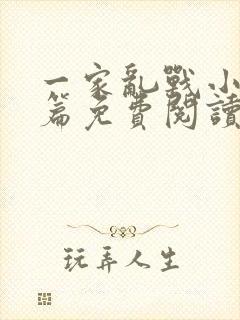 一家亂戰小
篇免費閱讀
玩弄人生